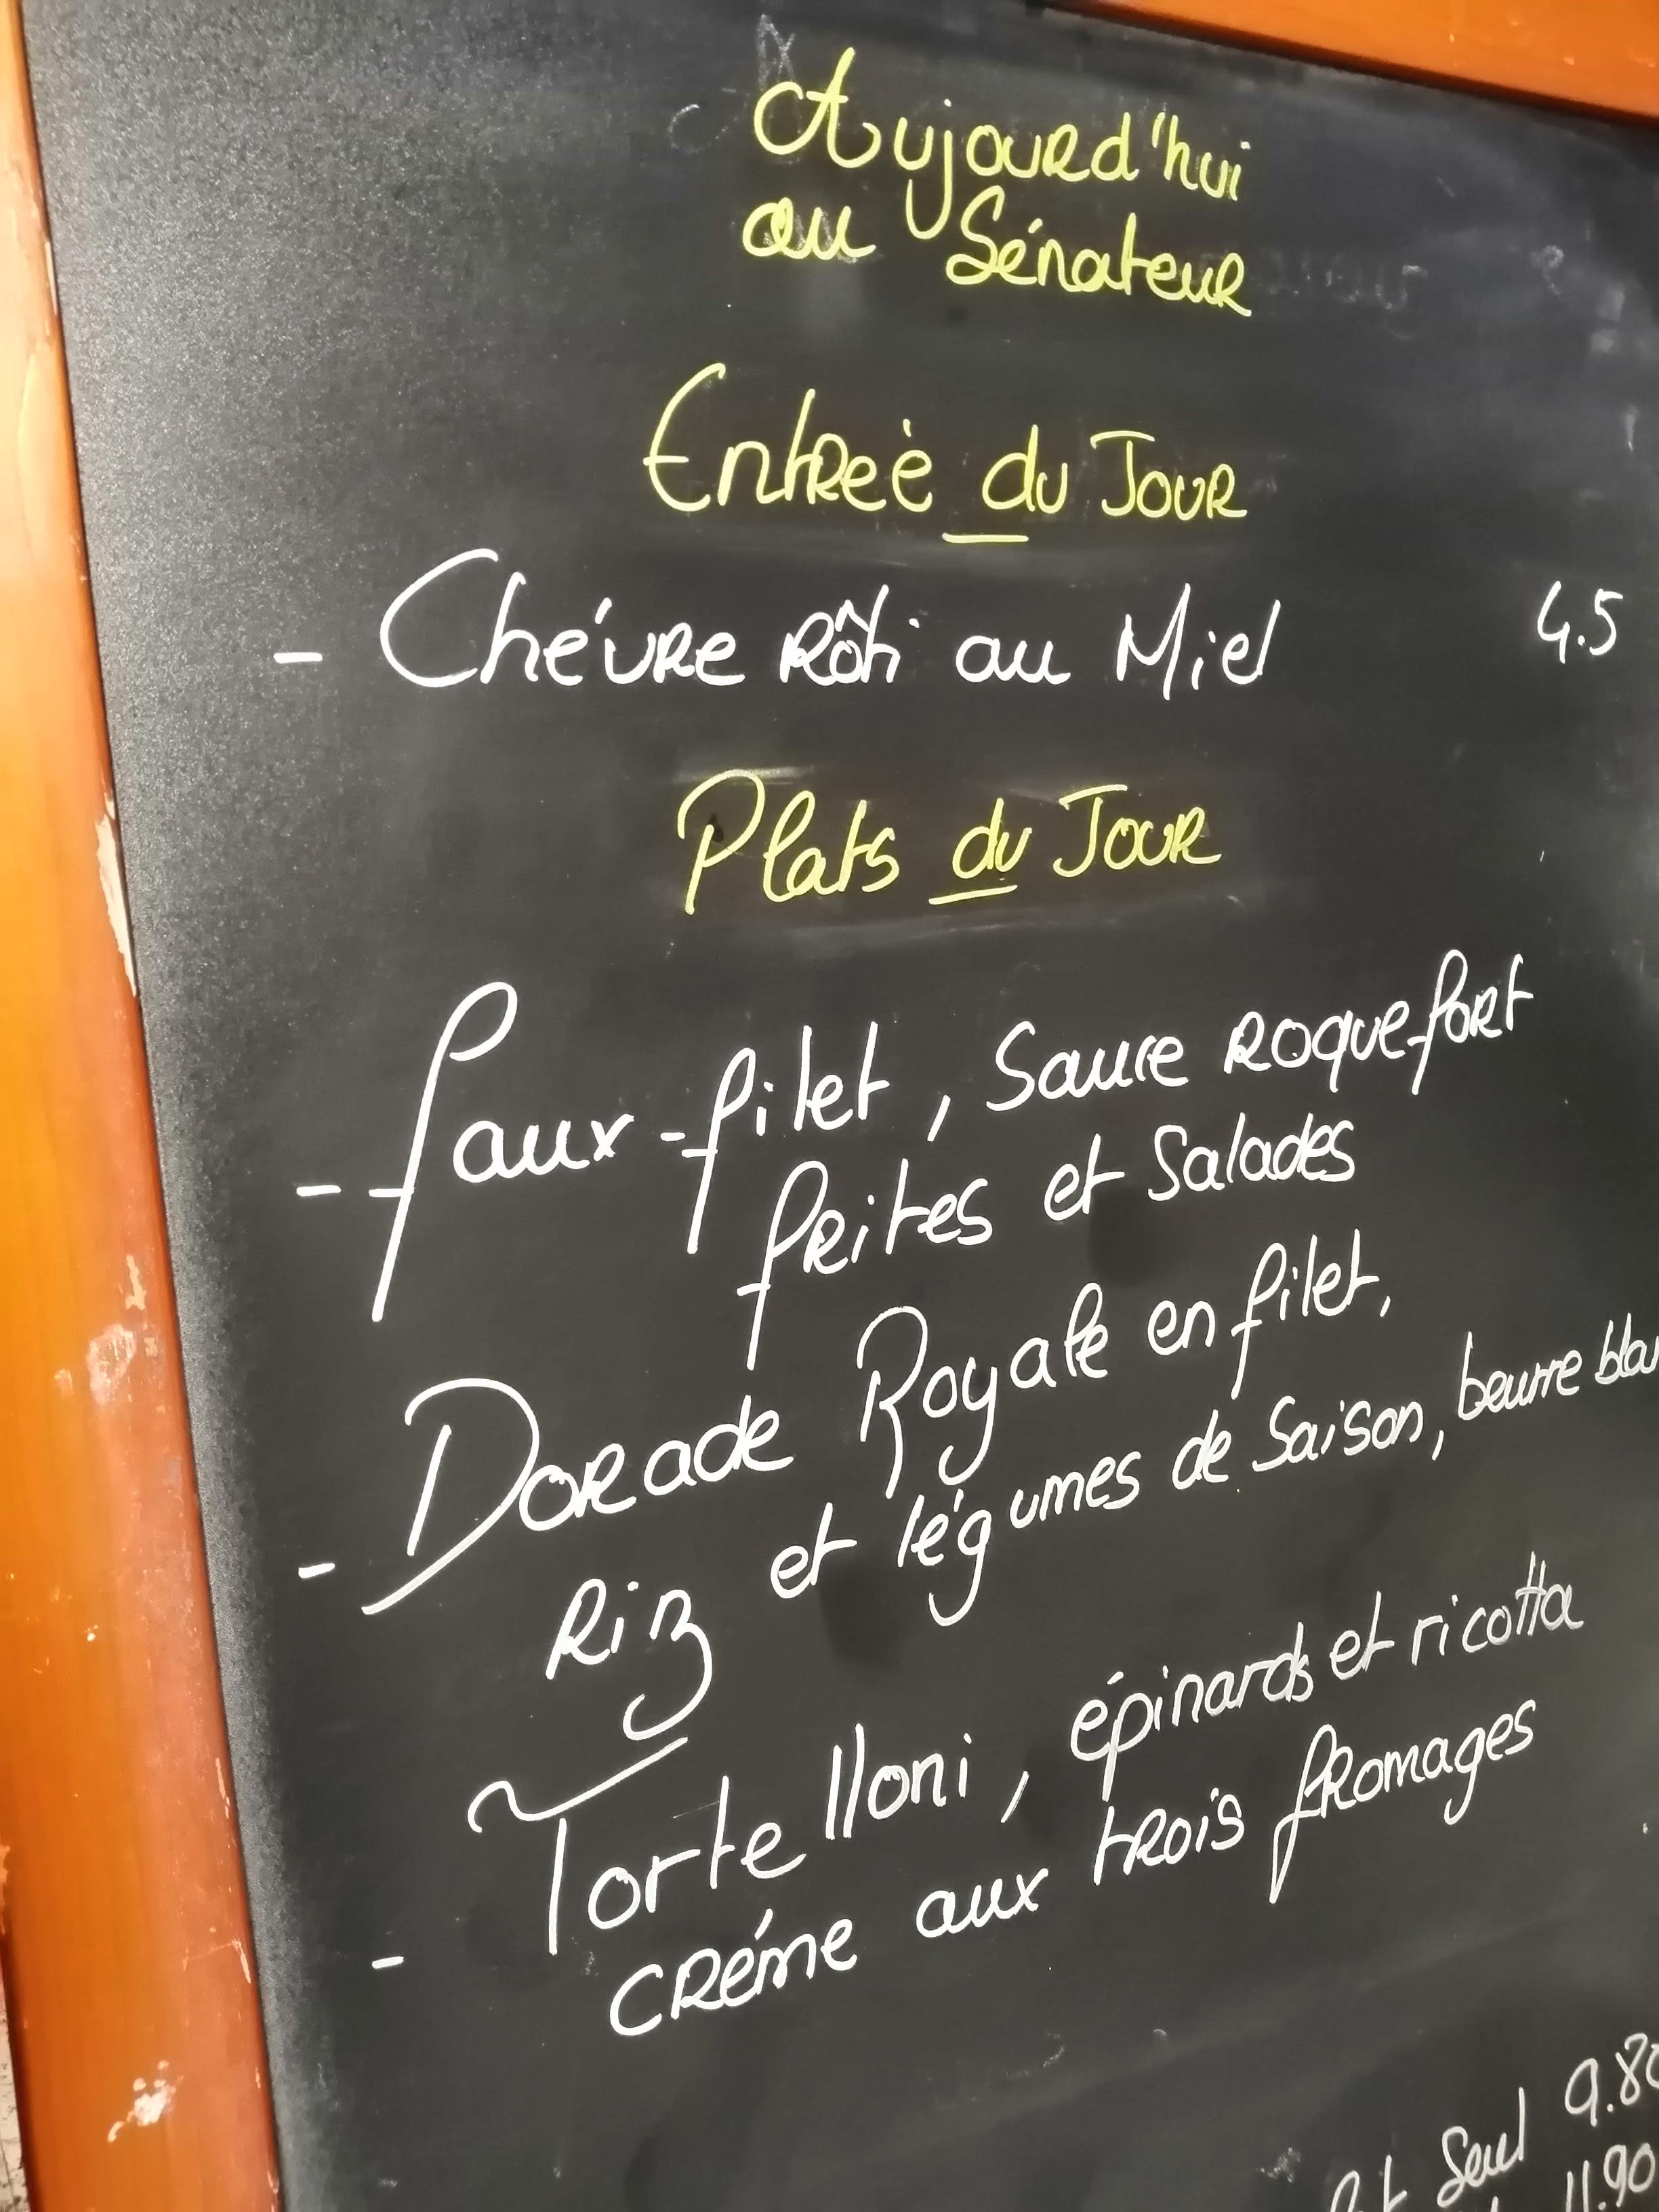 Aujourd'hui
au Sénateur
Entreé du Jour
- Chévre Rôti au Miel 4.5
Plats du Jour
- faux-filet, Sauce Roquefort
frites et Salades
- Dorade Royale en filet,
Riz et légumes de Saison, beurre blan
- Tortelloni, épinards et ricotta
créme aux trois fromages
Seul 9.80
11.90